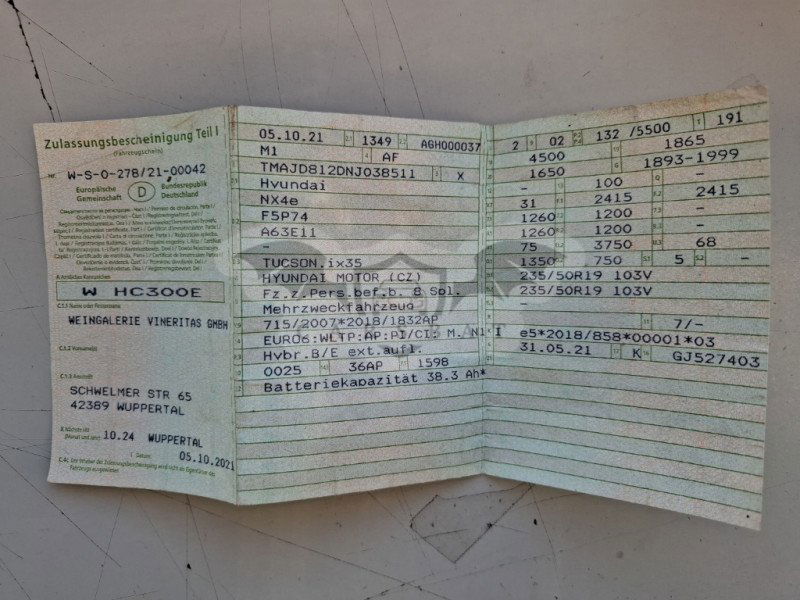 Zulassungsbescheinigung Teil I
(Fahrzeugschein)
Nr. W-S-O-278/21-00042
Europäische Gemeinschaft D Bundesrepublik Deutschland
A Amtliches Kennzeichen
W HC300E
C.1.1 Name oder Firmenname
WEINGALERIE VINERITAS GMBH
C.1.2 Vorname(n)
C.1.3 Anschrift
SCHWELMER STR 65
42389 WUPPERTAL
Nächste HU
(Monat und Jahr) 10.24 WUPPERTAL
I Datum: 05.10.2021
C.4c Der Inhaber der Zulassungsbescheinigung wird nicht als Eigentümer des Fahrzeugs ausgewiesen.
05.10.21 2.1 1349 2.2 AGH000037
M1 4 AF
TMAJD812DNJ038511 3 X
Hyundai
NX4e
F5P74
A63E11
-
TUCSON.ix35
HYUNDAI MOTOR (CZ)
Fz.z.Pers.bef.b. 8 Spl.
Mehrzweckfahrzeug
715/2007*2018/1832AP
EURO6:WLTP:AP:PI/CI: M. N1 I
Hybr.B/E ext.aufl.
0025 36AP 1598
Batteriekapazität 38.3 Ah*
2 9 02 132 /5500 T 191
4500 1865
1650 G 1893-1999
- 100 Q -
31 2415 2415
1260 1200 -
1260 1200 -
75 3750 U.3 68
1350 750 S.1 5 S.2 -
235/50R19 103V
235/50R19 103V
-
7/-
e5*2018/858*00001*03
31.05.21 17 K 16 GJ527403